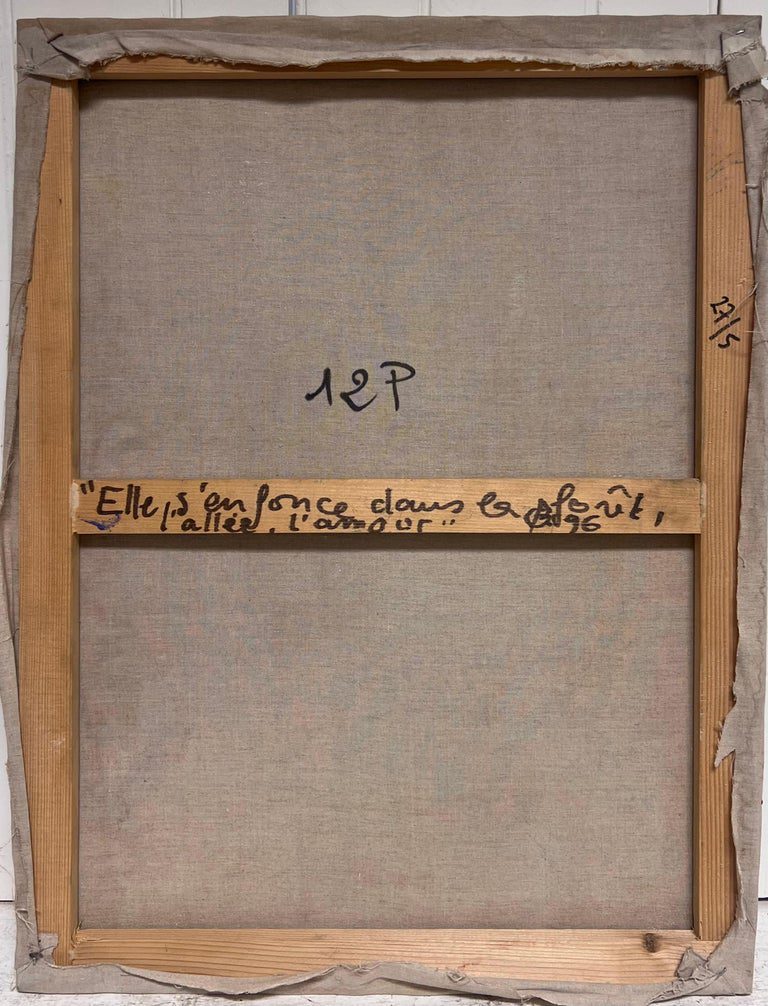 27/5
12P
"Elle, s'enfonce dans la forêt,
l'allée, l'amour" 96